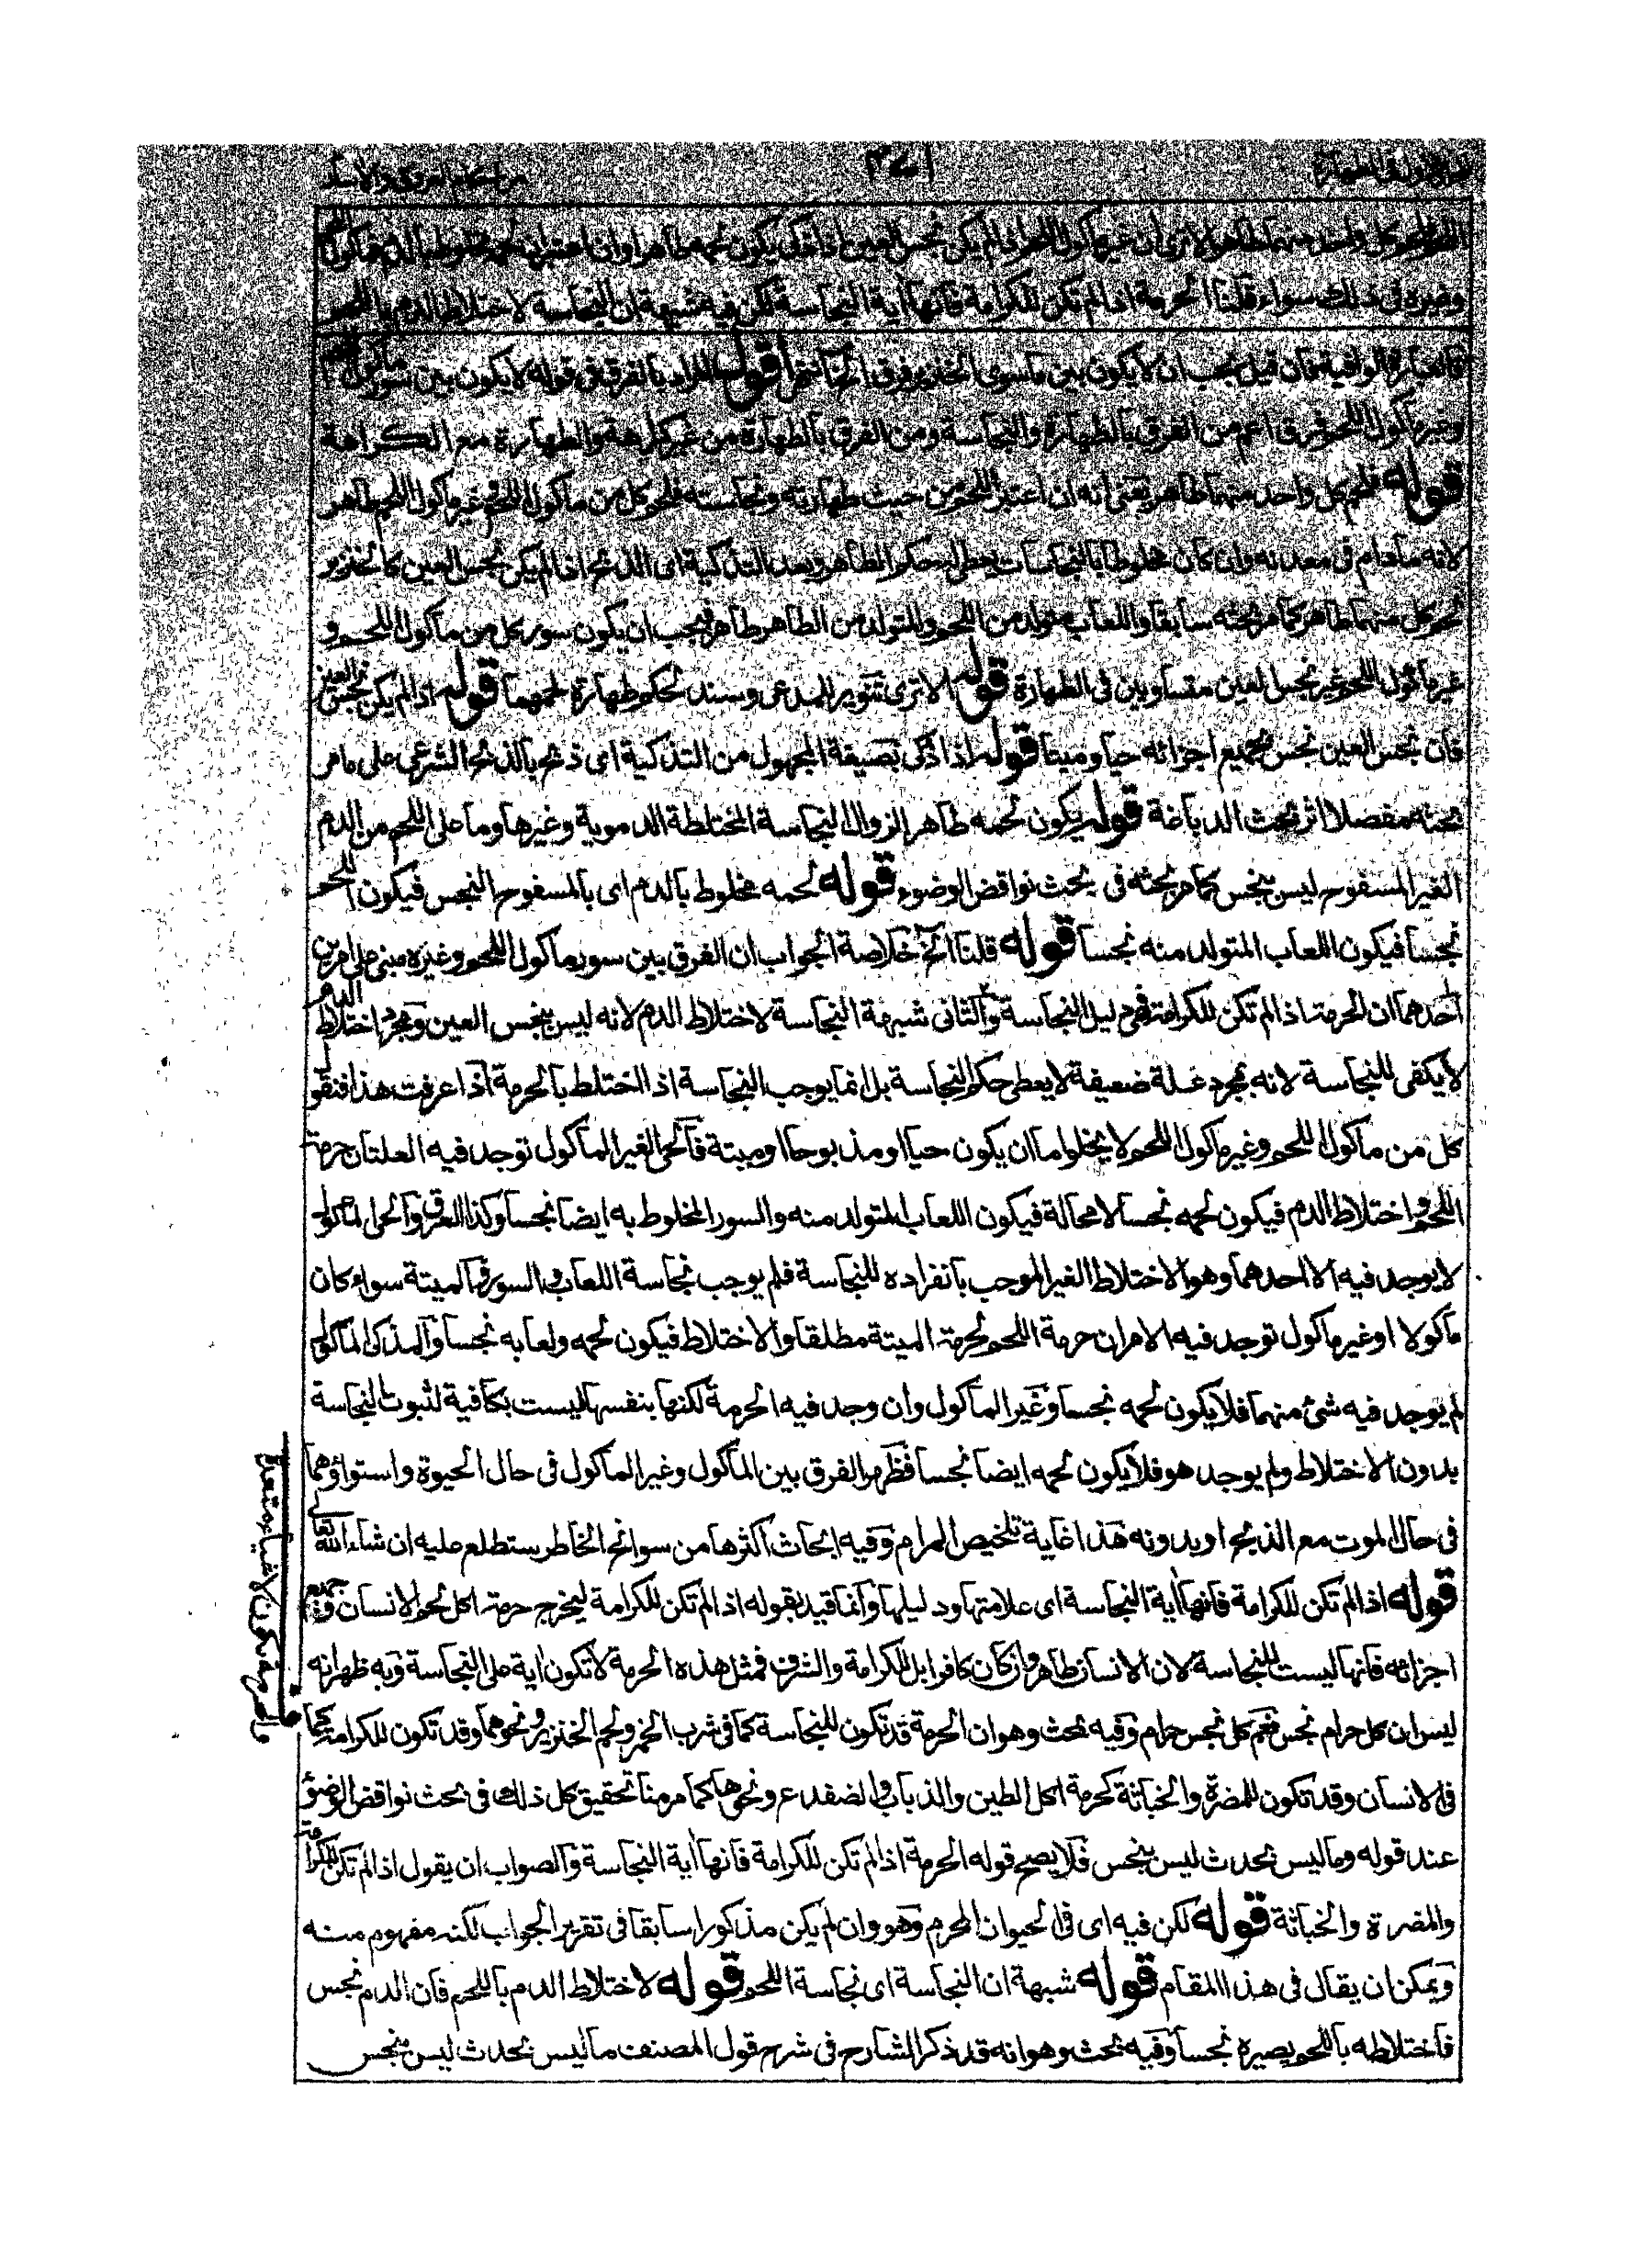 اللحم فلحم كل واحد منهما طاهر الا ترى ان غير مأكول اللحم اذا لم يكن نجس العين اذا ذكى يكون لحمه طاهرا وان اعتبر ان لحمه مخلوط بالدم فمأكول اللحم
وغيره فى ذلك سواء قلنا الحرمة اذا لم تكن للكرامة فانها أية النجاسة لكن فيه شبهة ان النجاسة لاختلاط الدم باللحم
فان قيل يجب ان لا يكون بين ما سوى الخنزير فرق الخ اقول المراد بالفرق فى قوله لا يكون بين سور مأكول اللحم
وغير مأكول اللحم فرق اعم من الفرق بالطهارة والنجاسة ومن الفرق بالطهارة من غير كراهة والطهارة مع الكراهة
قوله فلحم كل واحد منهما طاهر يعنى انه ان اعتبر اللحم من حيث طهارته ونجاسته فلحم كل من مأكول اللحم وغير مأكول اللحم طاهر
لانه ما دام فى معدنه وان كان مخلوطا بالنجاسات يعطى له حكم الطاهر وبعد التذكية اى الذبح اذا لم يكن نجس العين كالخنزير
لحم كل منهما طاهر كما مر بحثه سابقا واللعاب متولد من اللحم والمتولد من الطاهر طاهر فيجب ان يكون سور كل من مأكول اللحم و
غير مأكول اللحم غير نجس العين متساويين فى الطهارة قوله الا ترى تنوير للمدعى وسند لحكم طهارة لحمهما قوله اذا لم يكن نجس العين
فان نجس العين نجس بجميع اجزائه حيا وميتا قوله اذا ذكى بصيغة المجهول من التذكية اى ذبح بالذبح الشرعى على ما مر
بحثه مفصلا اثر بحث الدباغة قوله يكون لحمه طاهرا لزوال النجاسة المختلطة الدموية وغيرها وما على اللحم من الدم
الغير المسفوح ليس بنجس كما مر بحثه فى بحث نواقض الوضوء قوله لحمه مخلوط بالدم اى بالمسفوح النجس فيكون اللحم
نجسا فيكون اللعاب المتولد منه نجسا قوله قلنا الخ خلاصة الجواب ان الفرق بين سور مأكول اللحم وغيره مبنى على امرين
احدهما ان الحرمة اذا لم تكن للكرامة فهى دليل النجاسة والثانى شبهة النجاسة لاختلاط الدم لانه ليس بنجس العين ومجرد اختلاط الدم
لا يكفى للنجاسة لانه بمجرده علة ضعيفة لا يعطى حكم النجاسة بل انما يوجب النجاسة اذا اختلط بالحرمة اذا عرفت هذا فنقول
كل من مأكول اللحم وغير مأكول اللحم لا يخلو اما ان يكون حيا او مذبوحا او ميتة فالحى الغير المأكول توجد فيه العلتان حرمة
اللحم واختلاط الدم فيكون لحمه نجسا لا محالة فيكون اللعاب المتولد منه والسور المخلوط به ايضا نجسا وكذا العرق والحى المأكول
لا يوجد فيه الا احدهما وهو الاختلاط الغير الموجب بانفراده للنجاسة فلم يوجب نجاسة اللعاب والسور فالميتة سواء كان
مأكولا او غير مأكول توجد فيه الامران حرمة اللحم لحرمة الميتة مطلقا والاختلاط فيكون لحمه ولعابه نجسا والمذكى المأكول
لم يوجد فيه شئ منهما فلا يكون لحمه نجسا وغير المأكول وان وجد فيه الحرمة لكنها بنفسها ليست بكافية لثبوت النجاسة
بدون الاختلاط ولم يوجد هو فلا يكون لحمه ايضا نجسا فظهر الفرق بين المأكول وغير المأكول فى حال الحيوة واستواؤهما
فى حال الموت مع الذبح او بدونه هذا غاية تلخيص المرام وفيه ابحاث اكثرها من سوانح الخاطر ستطلع عليه ان شاء الله تعالى
قوله اذا لم تكن للكرامة فانها أية النجاسة اى علامتها ودليلها وانما قيد بقوله اذا لم تكن للكرامة ليخرج حرمة اكل لحم الانسان وجميع
اجزائه فانها ليست للنجاسة لان الانسان طاهر وان كان كافرا بل للكرامة والشرف فمثل هذه الحرمة لا تكون اية على النجاسة وبه ظهر انه
ليس ان كل حرام نجس نعم كل نجس حرام وفيه بحث وهو ان الحرمة قد تكون للنجاسة كما فى شرب الخمر ولحم الخنزير ونحوهما وقد تكون للكرامة كما
فى الانسان وقد تكون للمضرة والخباثة كحرمة اكل الطين والذباب والضفدع ونحوها كما مر منا تحقيق كل ذلك فى بحث نواقض الوضوء
عند قوله وما ليس بحدث ليس بنجس فلا يصح قوله الحرمة اذا لم تكن للكرامة فانها أية النجاسة والصواب ان يقول اذا لم تكن للكرامة
والمضرة والخباثة قوله لكن فيه اى فى الحيوان المحرم وهو وان لم يكن مذكورا سابقا فى تقرير الجواب لكنه مفهوم منه
ويمكن ان يقال فى هذا المقام قوله شبهة ان النجاسة اى نجاسة اللحم قوله لاختلاط الدم باللحم فان الدم نجس
فاختلاطه باللحم يصيره نجسا وفيه بحث وهو انه قد ذكر الشارح فى شرح قول المصنف ما ليس بحدث ليس بنجس